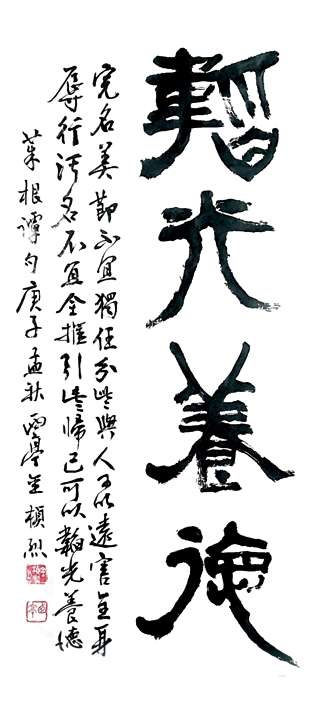 韜光養德
完名美節不宜獨任分些與人可以遠害全身
辱行汚名不宜全推引些歸己可以韜光養德
菜根譚句庚子孟秋 亭金槙烈